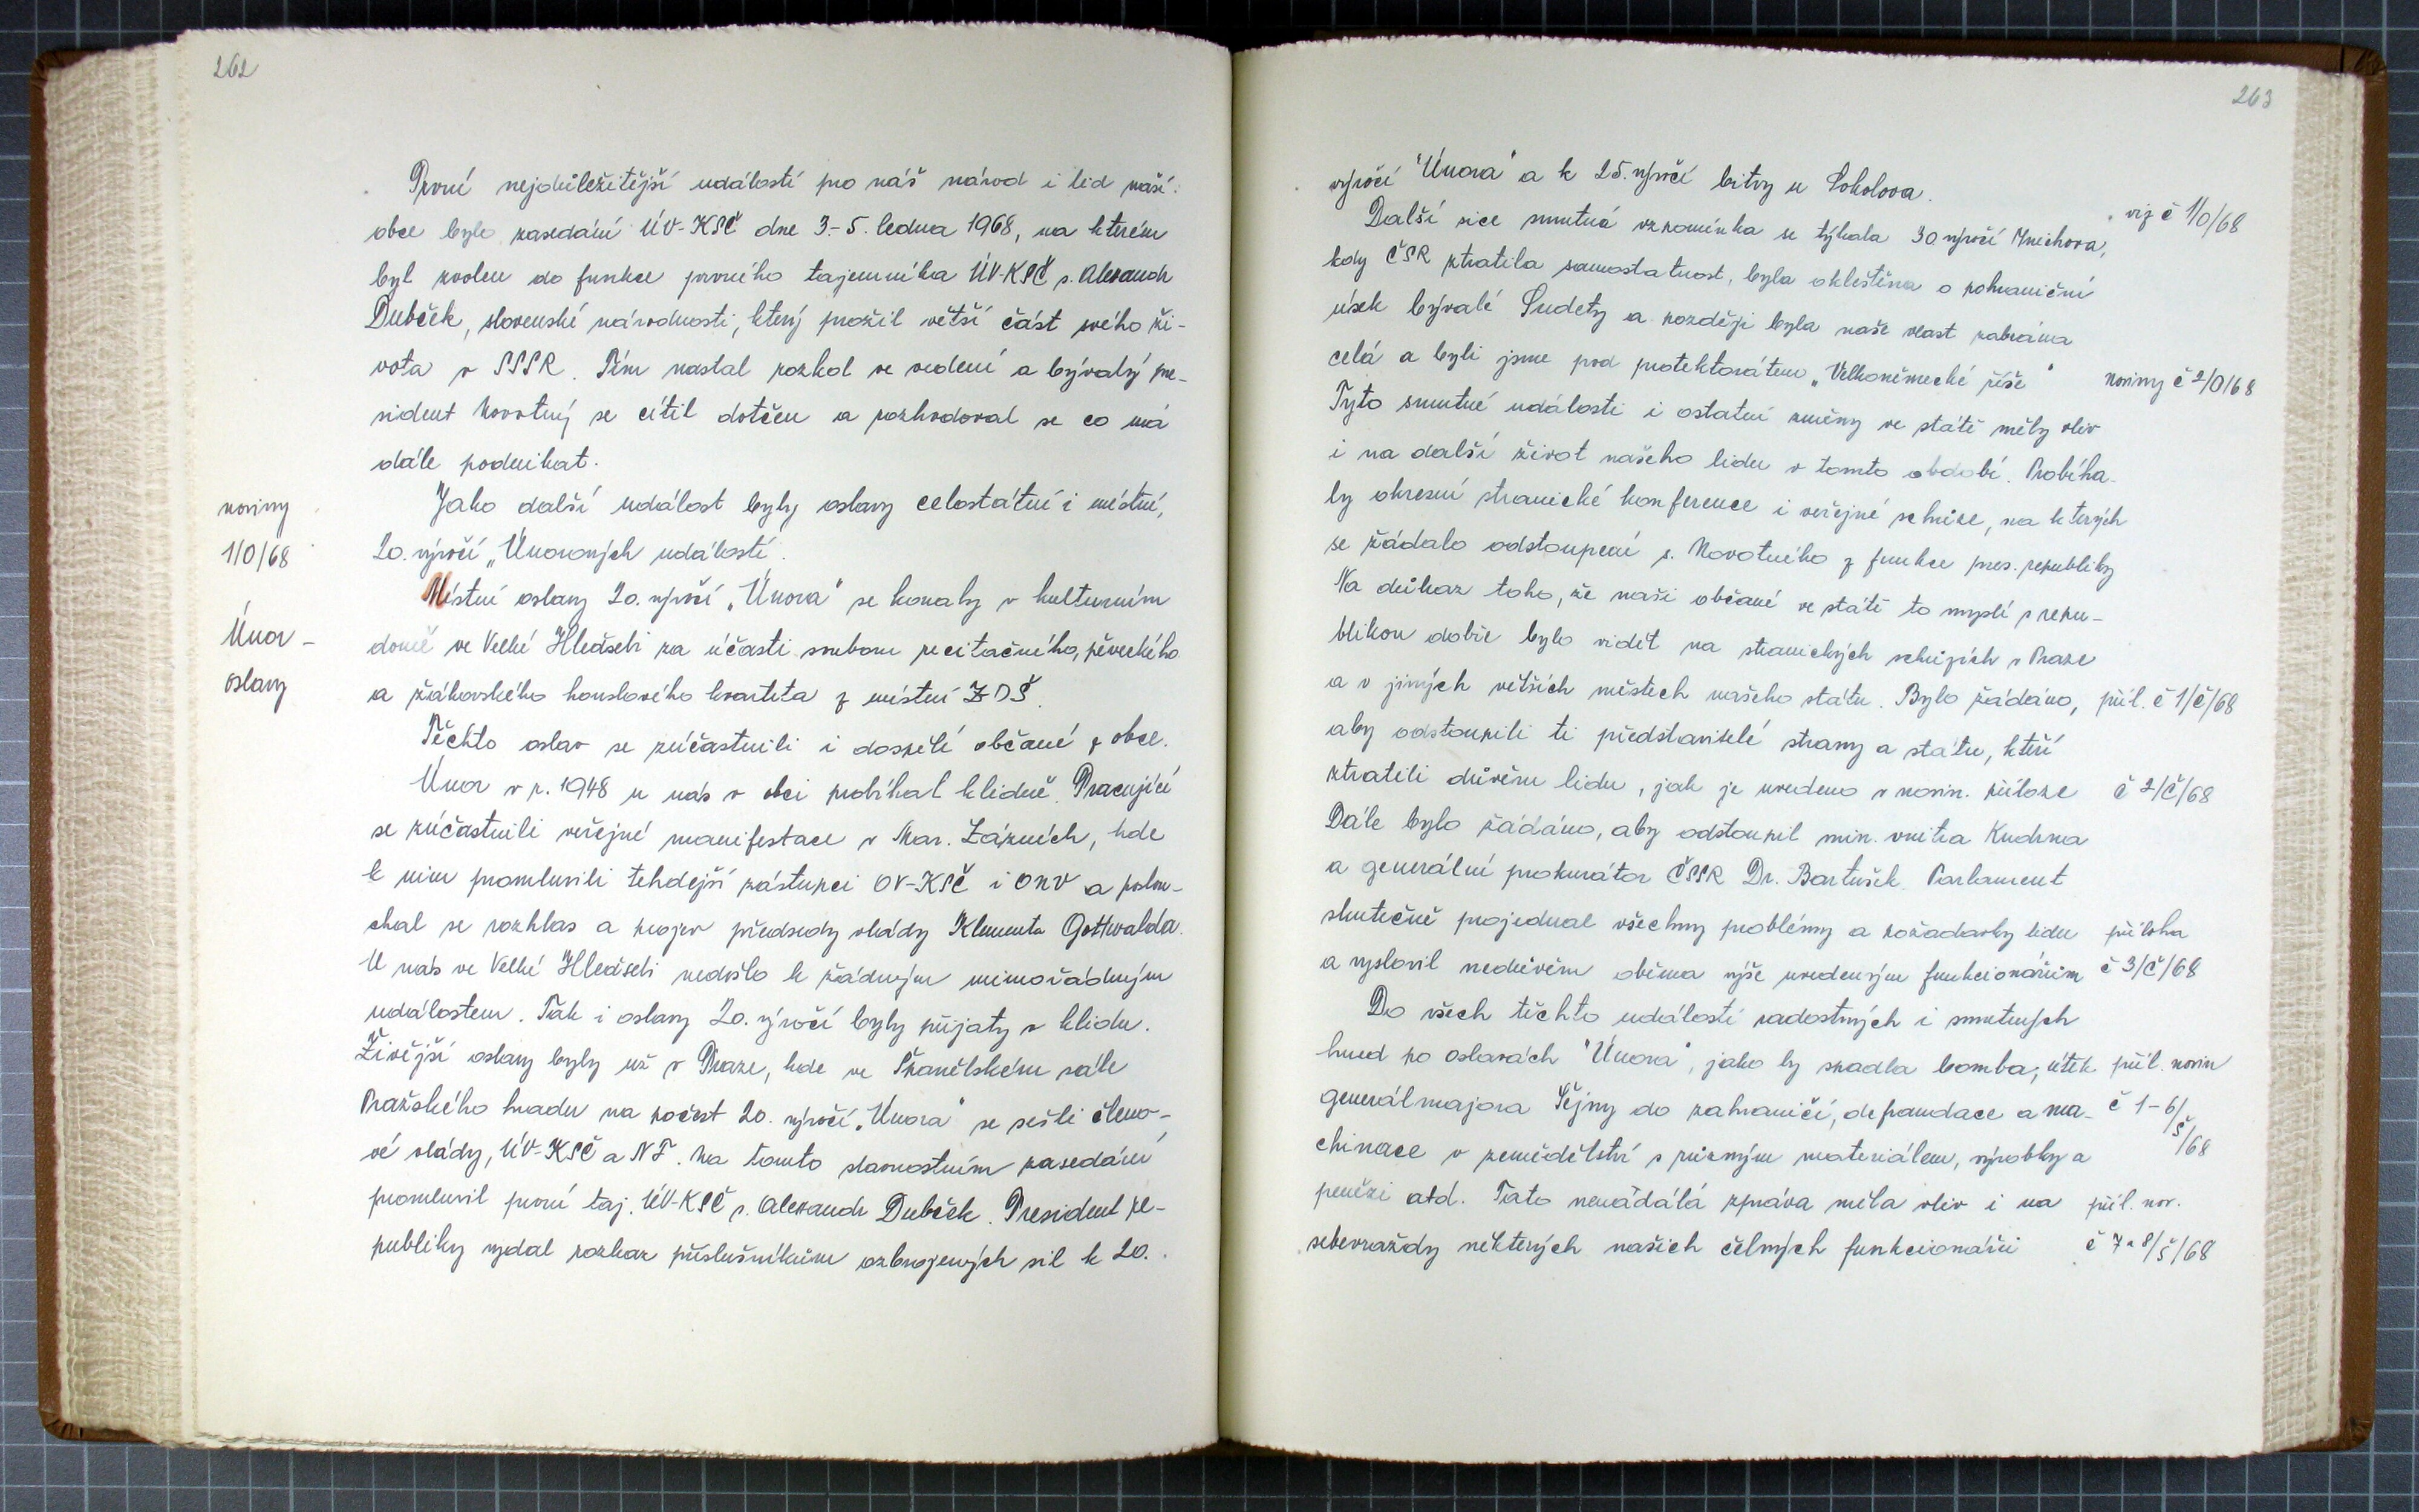 262
První nejdůležitější událostí pro náš národ i lid naší
obce bylo zasedání ÚV-KSČ dne 3.-5. ledna 1968, na kterém
byl zvolen do funkce prvního tajemníka ÚV-KSČ s. Alexandr
Dubček, slovenské národnosti, který prožil větší část svého ži-
vota v SSSR. Tím nastal rozkol ve vedení a bývalý pre-
sident Novotný se cítil dotčen a rozhodoval se co má
dále podnikat.
noviny
1/O/68
Jako další událost byly oslavy celostátní i místní,
20. výročí „Únorových událostí.
Únor -
oslavy
Místní oslavy 20. výročí „Února" se konaly v kulturním
domě ve Velké Hleďsebi za účasti souboru recitačního, pěveckého
a žákovského houslového kvarteta z místní ZDŠ.
Těchto oslav se zúčastnili i dospělí občané z obce.
Únor v r. 1948 u nás v obci probíhal klidně. Pracující
se zúčastnili veřejné manifestace v Mar. Lázních, kde
k nim promluvili tehdejší zástupci OV-KSČ i ONV a poslou-
chal se rozhlas a projev předsedy vlády Klementa Gottwalda.
U nás ve Velké Hleďsebi nedošlo k žádným mimořádným
událostem. Tak i oslavy 20. výročí byly přijaty v klidu.
Živější oslavy byly už v Praze, kde ve Španělském sále
Pražského hradu na počest 20. výročí „Února" se sešli členo-
vé vlády, ÚV-KSČ a NF. Na tomto slavnostním zasedání
promluvil první taj. ÚV-KSČ s. Alexandr Dubček. President re-
publiky vydal rozkaz příslušníkům ozbrojených sil k 20.
263
výročí "Února" a k 25. výročí bitvy u Sokolova.
viz č 1/O/68
Další sice smutná vzpomínka se týkala 30 výročí Mnichova,
kdy ČSR ztratila samostatnost, byla okleštěna o pohraniční
úsek bývalé Sudety a později byla naše vlast zabrána
celá a byli jsme pod protektorátem „Velkoněmecké říše"
noviny č 2/O/68
Tyto smutné události i ostatní změny ve státě měly vliv
i na další život našeho lidu v tomto období. Probíha-
ly okresní stranické konference i veřejné schůze, na kterých
se žádalo odstoupení s. Novotného z funkce pres. republiky
Na důkaz toho, že naši občané ve státě to myslí s repu-
blikou dobře bylo vidět na stranických schůzích v Praze
a v jiných větších městech našeho státu. Bylo žádáno,
příl. č 1/č/68
aby odstoupili ti představitelé strany a státu, kteří
ztratili důvěru lidu, jak je uvedeno v novin. příloze
č 2/č/68
Dále bylo žádáno, aby odstoupil min. vnitra Kudrna
a generální prokurátor ČSSR Dr. Bartušek. Parlament
skutečně projednal všechny problémy a požadavky lidu
příloha
a vyslovil nedůvěru oběma výše uvedeným funkcionářům
č 3/č/68
Do všech těchto událostí radostných i smutných
hned po oslavách "Února", jako by spadla bomba, útěk
příl. novin
generálmajora Šejny do zahraničí, defraudace a ma-
č 1-6/š/68
chinace v zemědělství s různým materiálem, výrobky a
penězi atd. Tato nenadálá zpráva měla vliv i na
příl. nov.
sebevraždy některých našich čelných funkcionářů
č 7a8/š/68